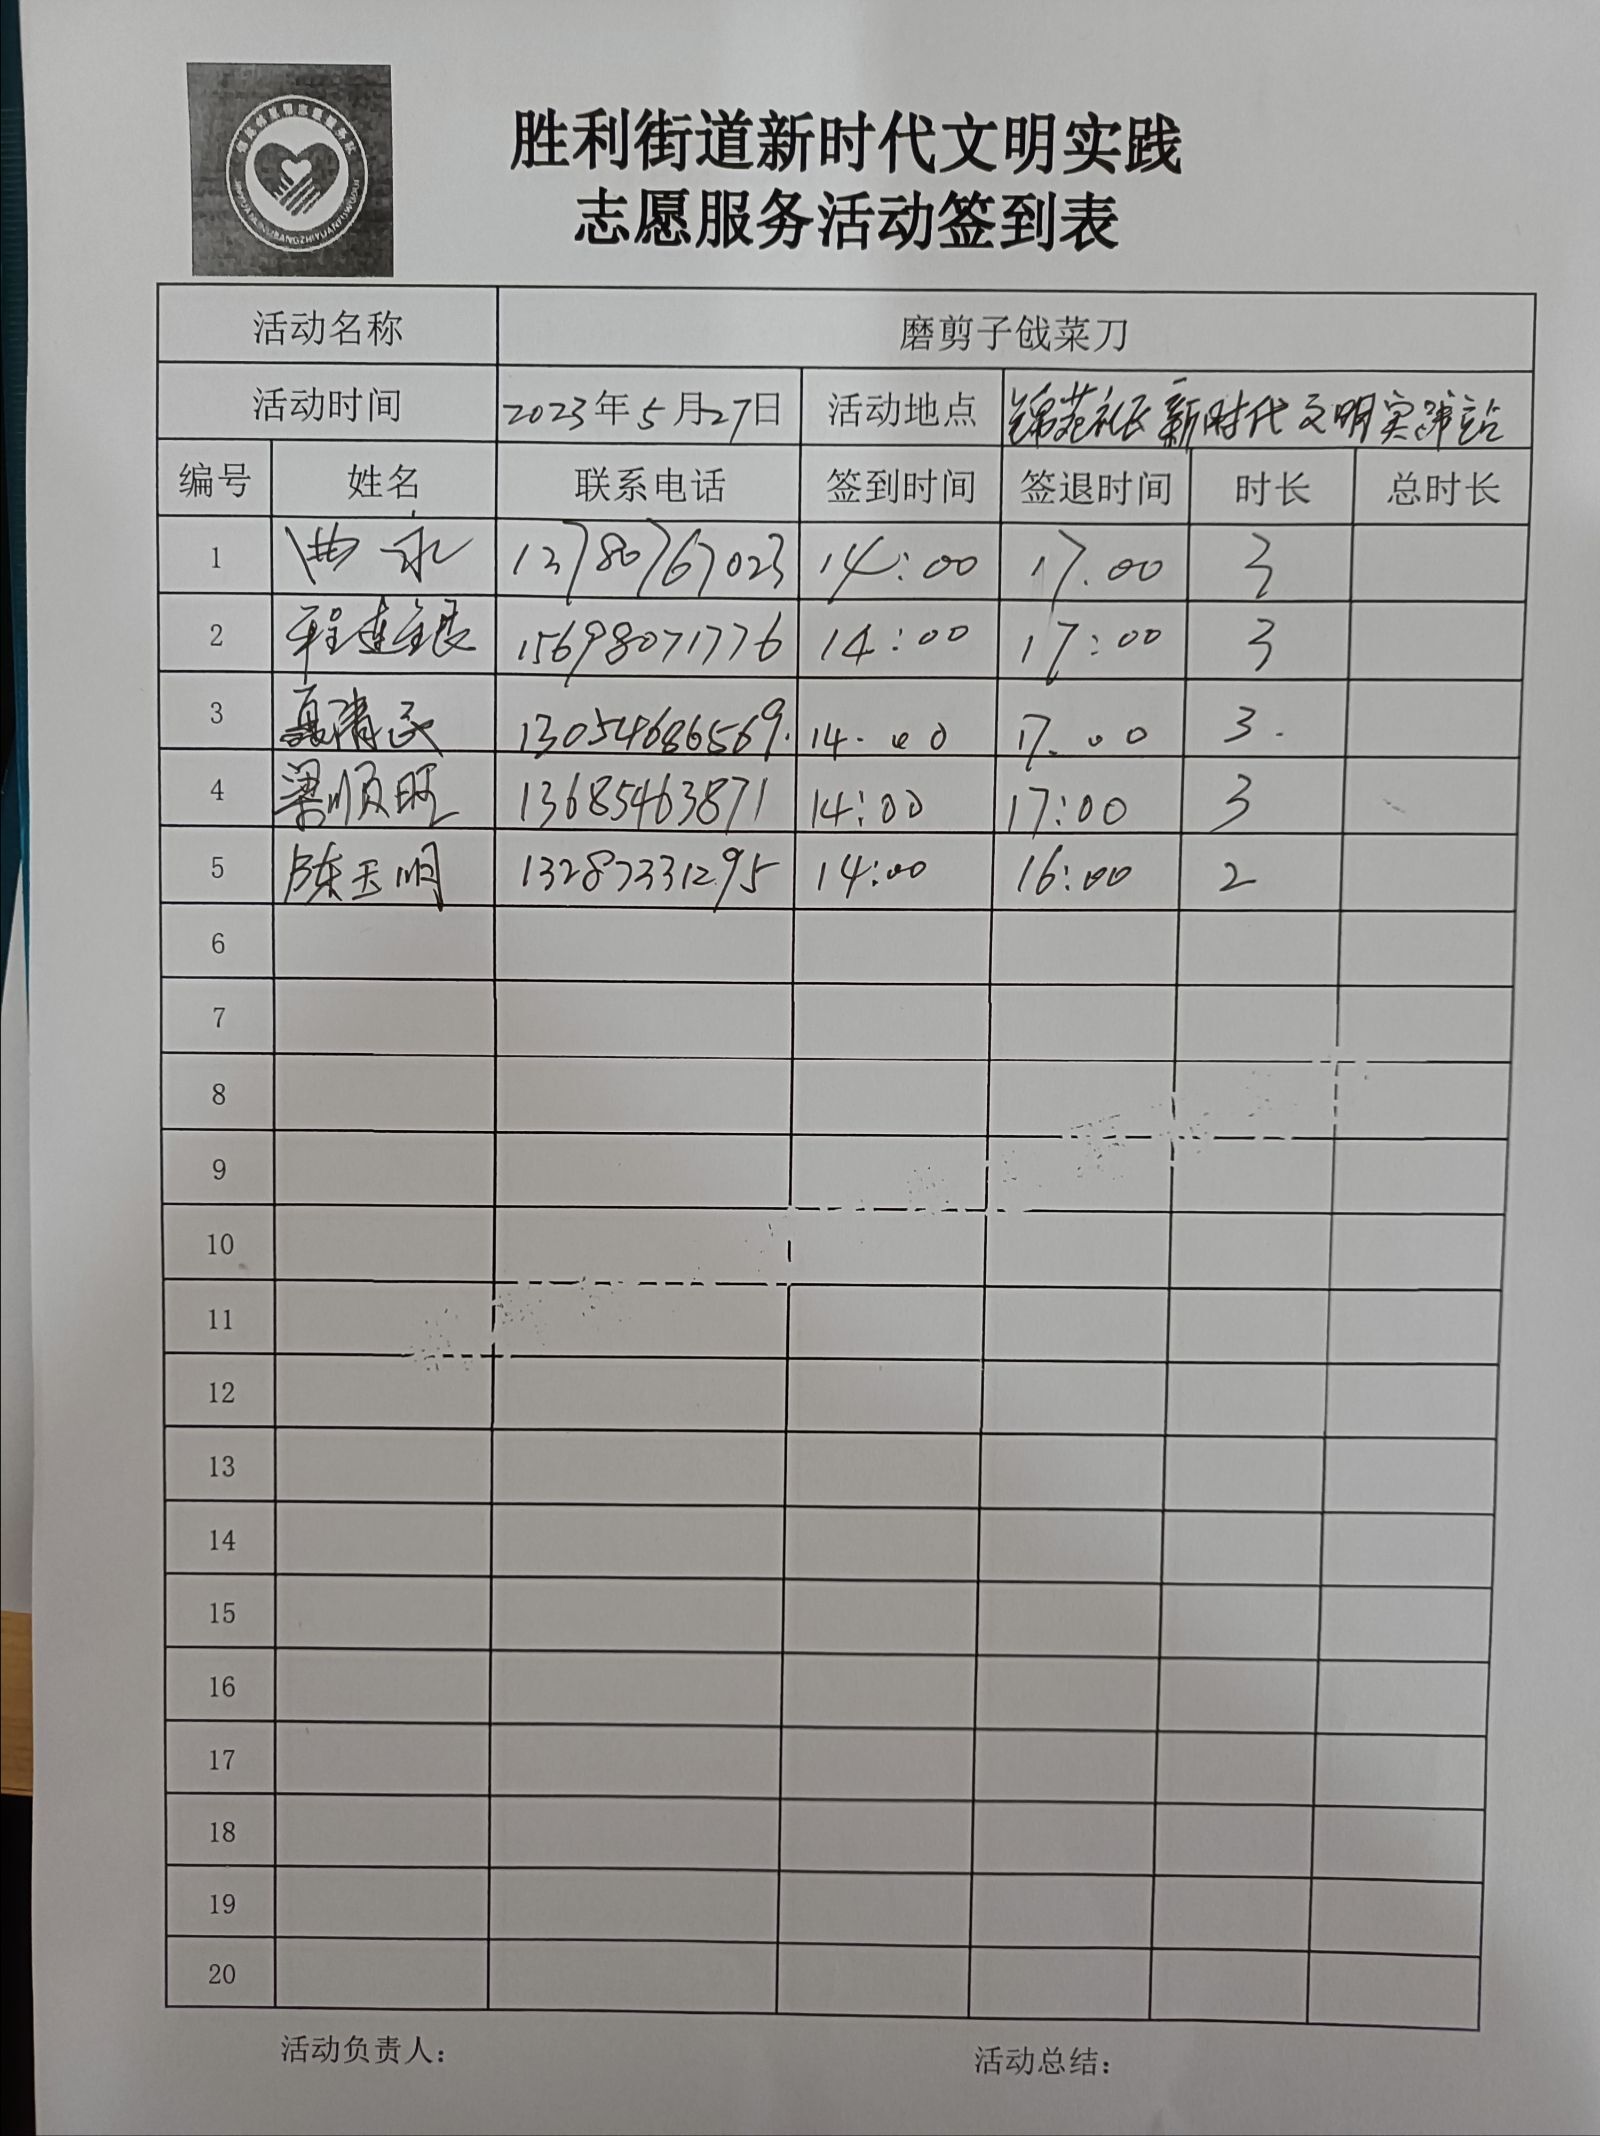 胜利街道新时代文明实践
志愿服务活动签到表
活动名称 磨剪子戗菜刀
活动时间 2023年5月27日 活动地点 锦苑社区新时代文明实践站
编号 姓名 联系电话 签到时间 签退时间 时长 总时长
1 曲永 13780767023 14:00 17.00 3
2 程连银 15698071776 14:00 17:00 3
3 夏清民 13054686569. 14.00 17.00 3.
4 梁顺旺 13685463871 14:00 17:00 3
5 陈玉明 13287331295 14:00 16:00 2
6
7
8
9
10
11
12
13
14
15
16
17
18
19
20
活动负责人： 活动总结：